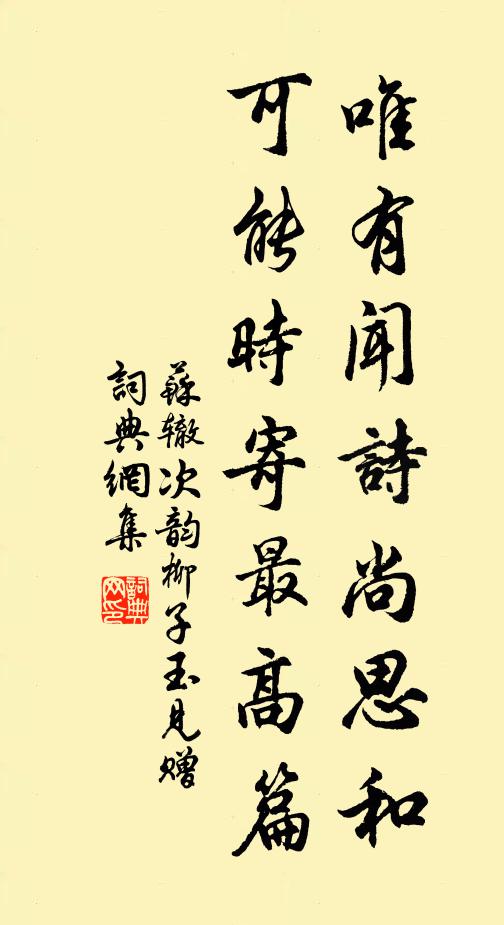 唯有聞詩尚思和
可能時寄最高篇
蘇辙次韵柳子玉見赠
詞典網集
詞典网印